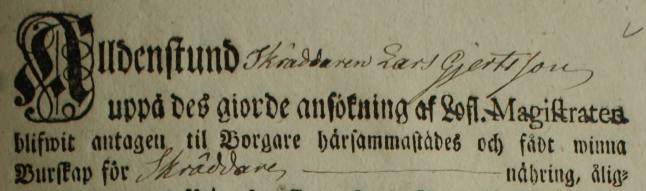 Alldenstund Skräddaren Lars Gjertsson
uppå des giorde ansökning af Lofl. Magistraten
blifwit antagen til Borgare härsammastädes och fådt winna
Burskap för Skräddare nähring, ålig=